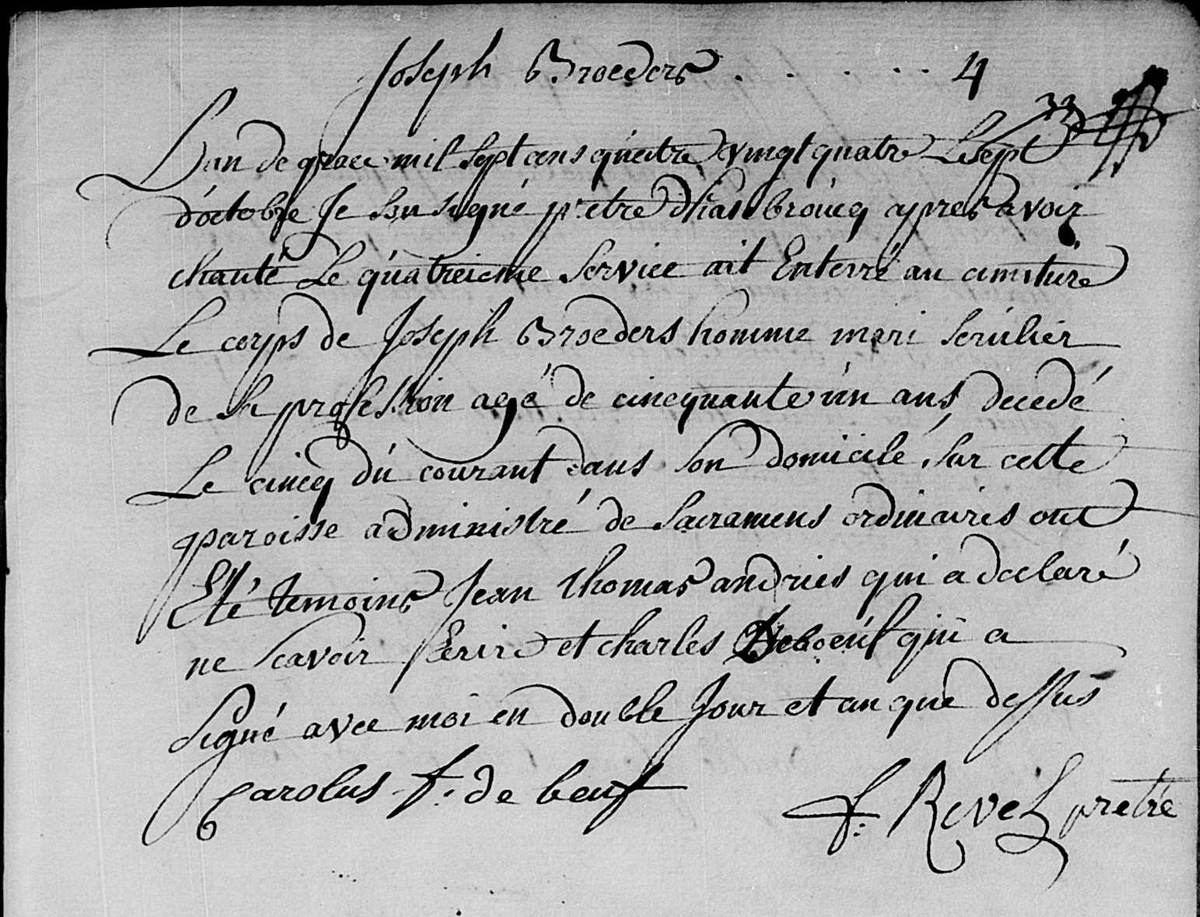 Joseph Broeders . . . . . . . 4
33
L'an de grace mil sept cens quatre vingt quatre Le sept
d'octobre Je sousigné pretre d'hasebroucq apres avoir
chanté Le quatreieme service ait Enterré au cimitiere
Le corps de Joseph Broeders homme mari serulier
de sa profession agé de cincquante un ans decedé
Le cincq du courant dans son domicile, sur cette
paroisse administré de sacramens ordinaires ont
Eté temoins Jean thomas andries qui a declaré
ne scavoir Ecrire et charles Deboeuf qui a
signé avec moi en double Jour et an que dessus
Carolus f. de beuf
f: Revel pretre